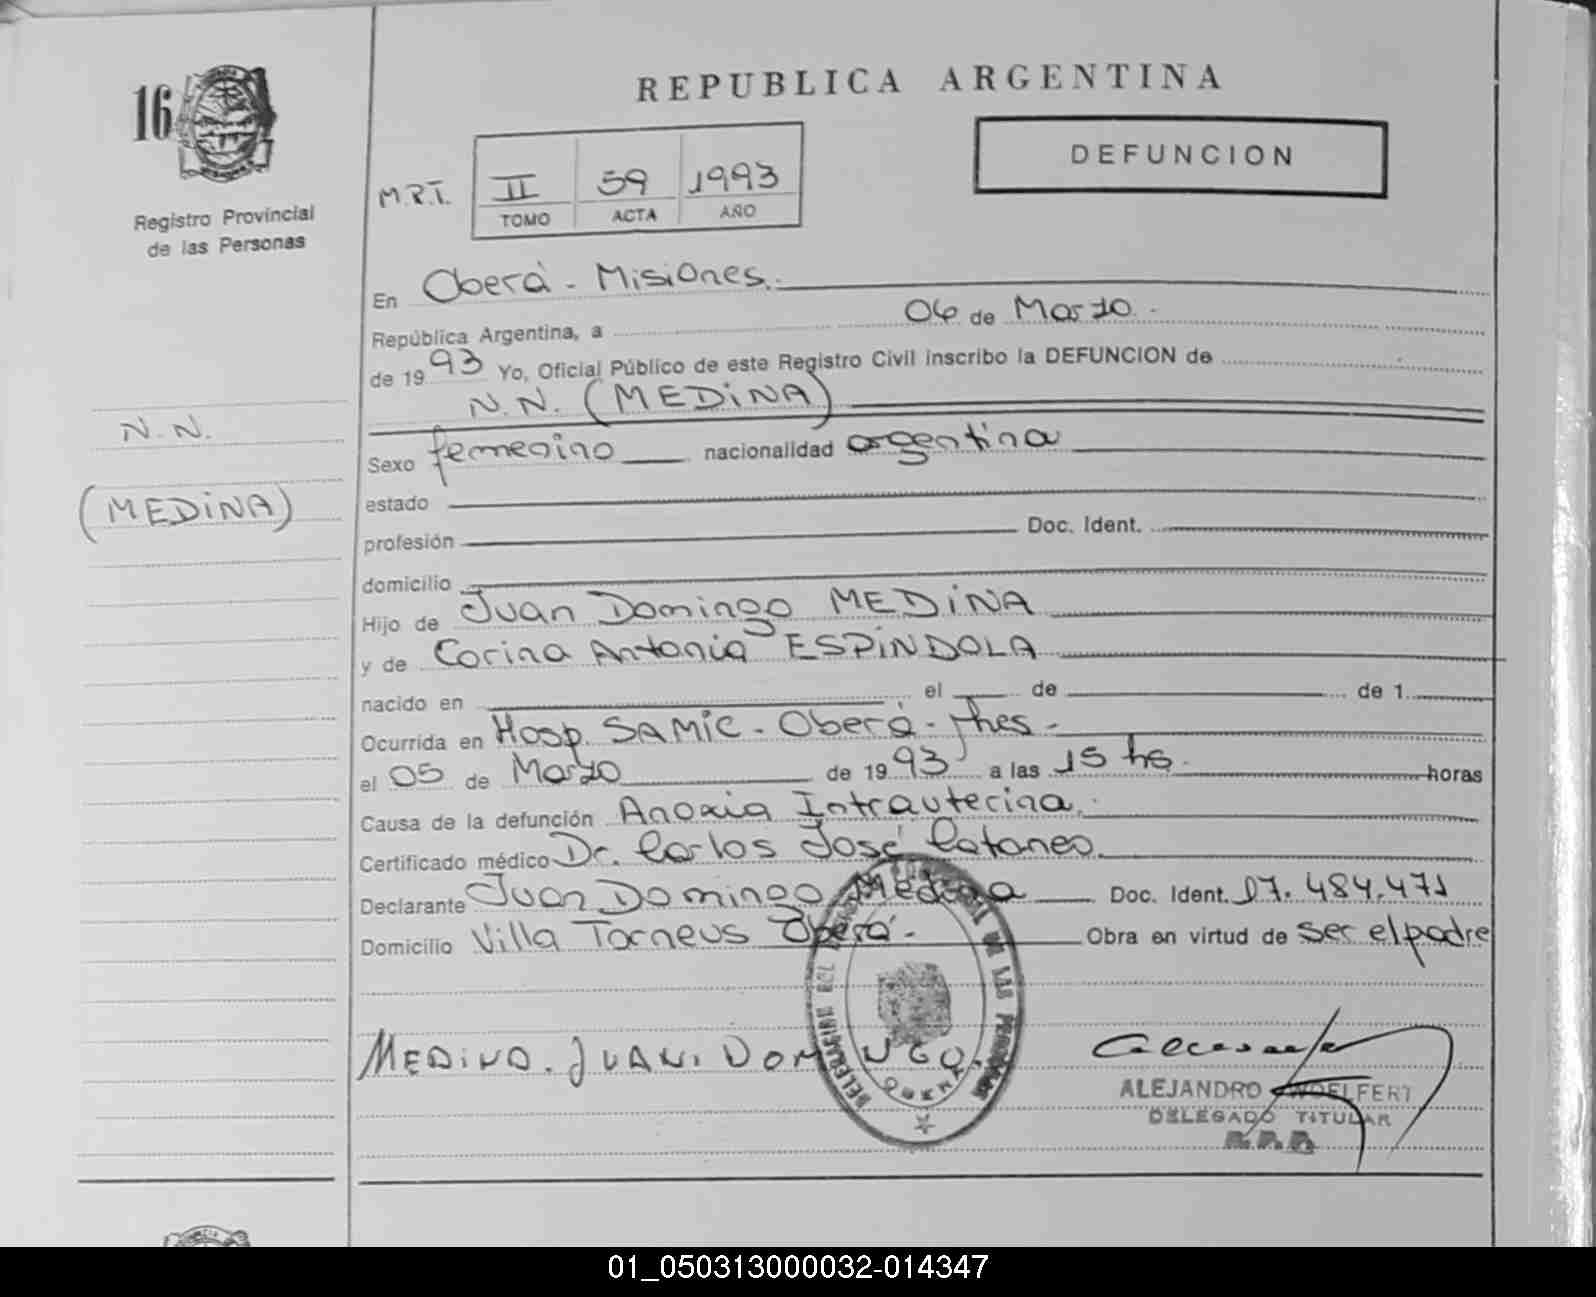 16
Registro Provincial
de las Personas
REPUBLICA ARGENTINA
DEFUNCION
M.P.I.
II 59 1993
TOMO ACTA AÑO
En Oberá - Misiones.
República Argentina, a 06 de Marzo -
de 1993 Yo, Oficial Público de este Registro Civil inscribo la DEFUNCION de
N.N. (MEDINA)
N.N.
(MEDINA)
Sexo femenino nacionalidad argentina
estado
profesión Doc. Ident.
domicilio
Hijo de Juan Domingo MEDINA
y de Corina Antonia ESPINDOLA
nacido en el de de 1
Ocurrida en Hosp. SAMIC - Oberá -
el 05 de Marzo de 1993 a las 15 hs. horas
Causa de la defunción Anoxia Intrauterina.
Certificado médico Dr. Carlos José Cataneo
Declarante Juan Domingo Medina Doc. Ident. 17.484.471
Domicilio Villa Torneus Oberá - Obra en virtud de Ser el padre
MEDINA. JUAN. DOMINGO.
DE LAS PERSONAS
OBERA
ALEJANDRO WOELFERT
DELEGADO TITULAR
R.P.P.
01_050313000032-014347